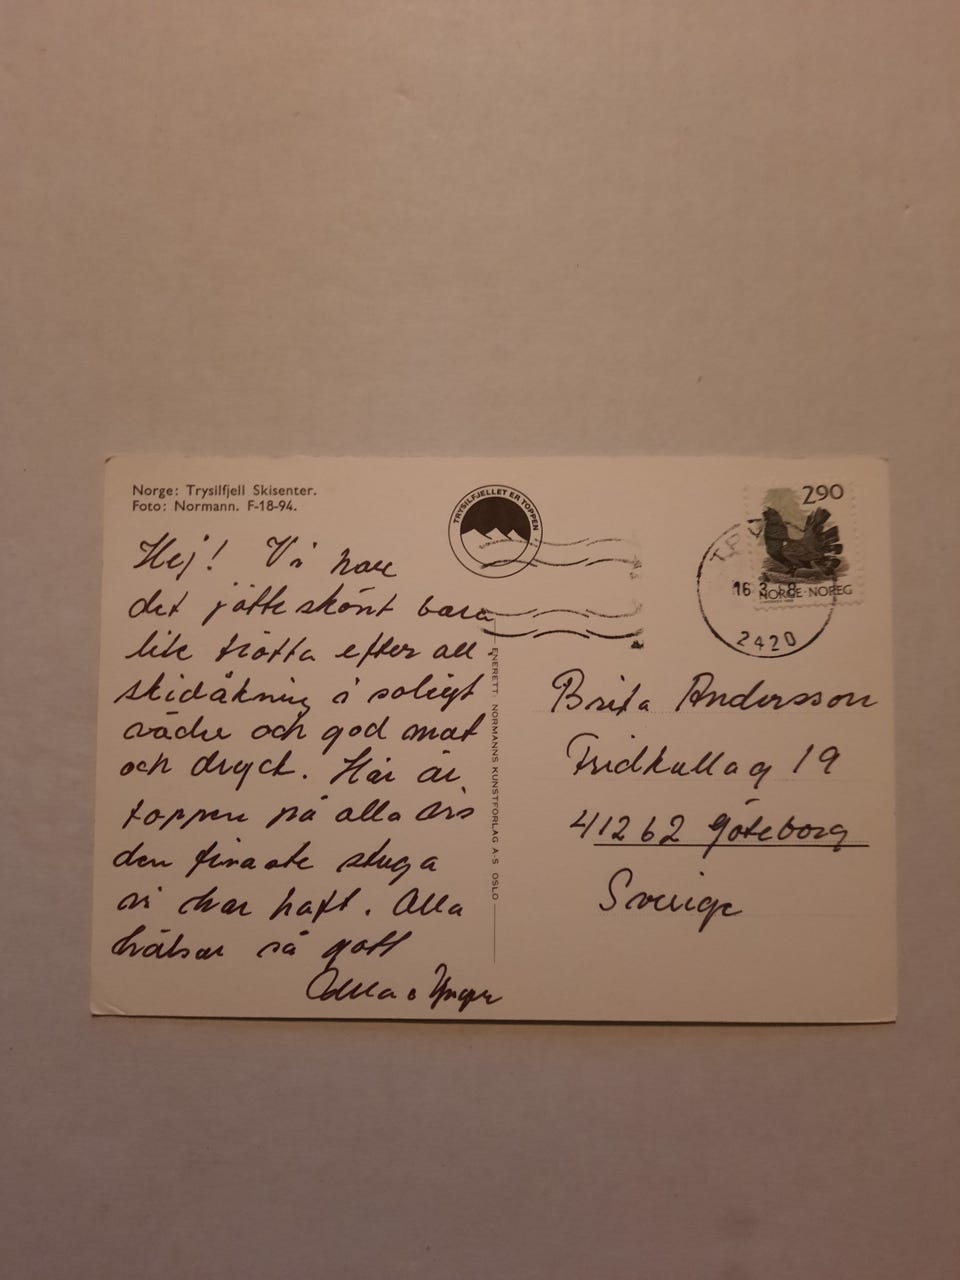 Norge: Trysilfjell Skisenter.
Foto: Normann. F-18-94.
TRYSILFJELLET ER TOPPEN
290
NORGE·NOREG
16.3.88
2420
Hej! Vi har
det jätteskönt bara
lite trötta efter all
skidåkning i soligt
väder och god mat
och dryck. Här är
toppen på alla vis
den finaste stuga
vi har haft. Alla
hälsar så gott
ENERETT: NORMANNS KUNSTFORLAG A-S OSLO
Brita Andersson
Fridkullag 19
41262 Göteborg
Sverige